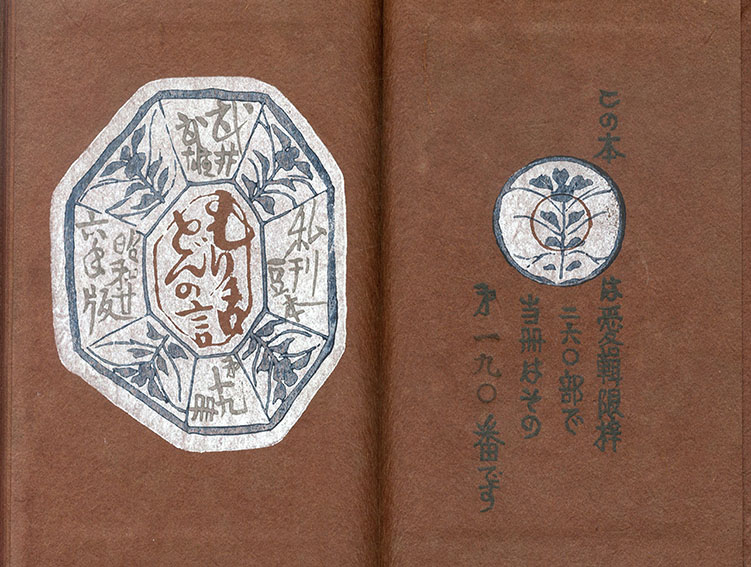 武井
武雄
私刊
豆本
どんの
第十九
冊
昭和廿
六年版
この本は愛輯限梓
二六〇部で
当冊はその
第一九〇番です